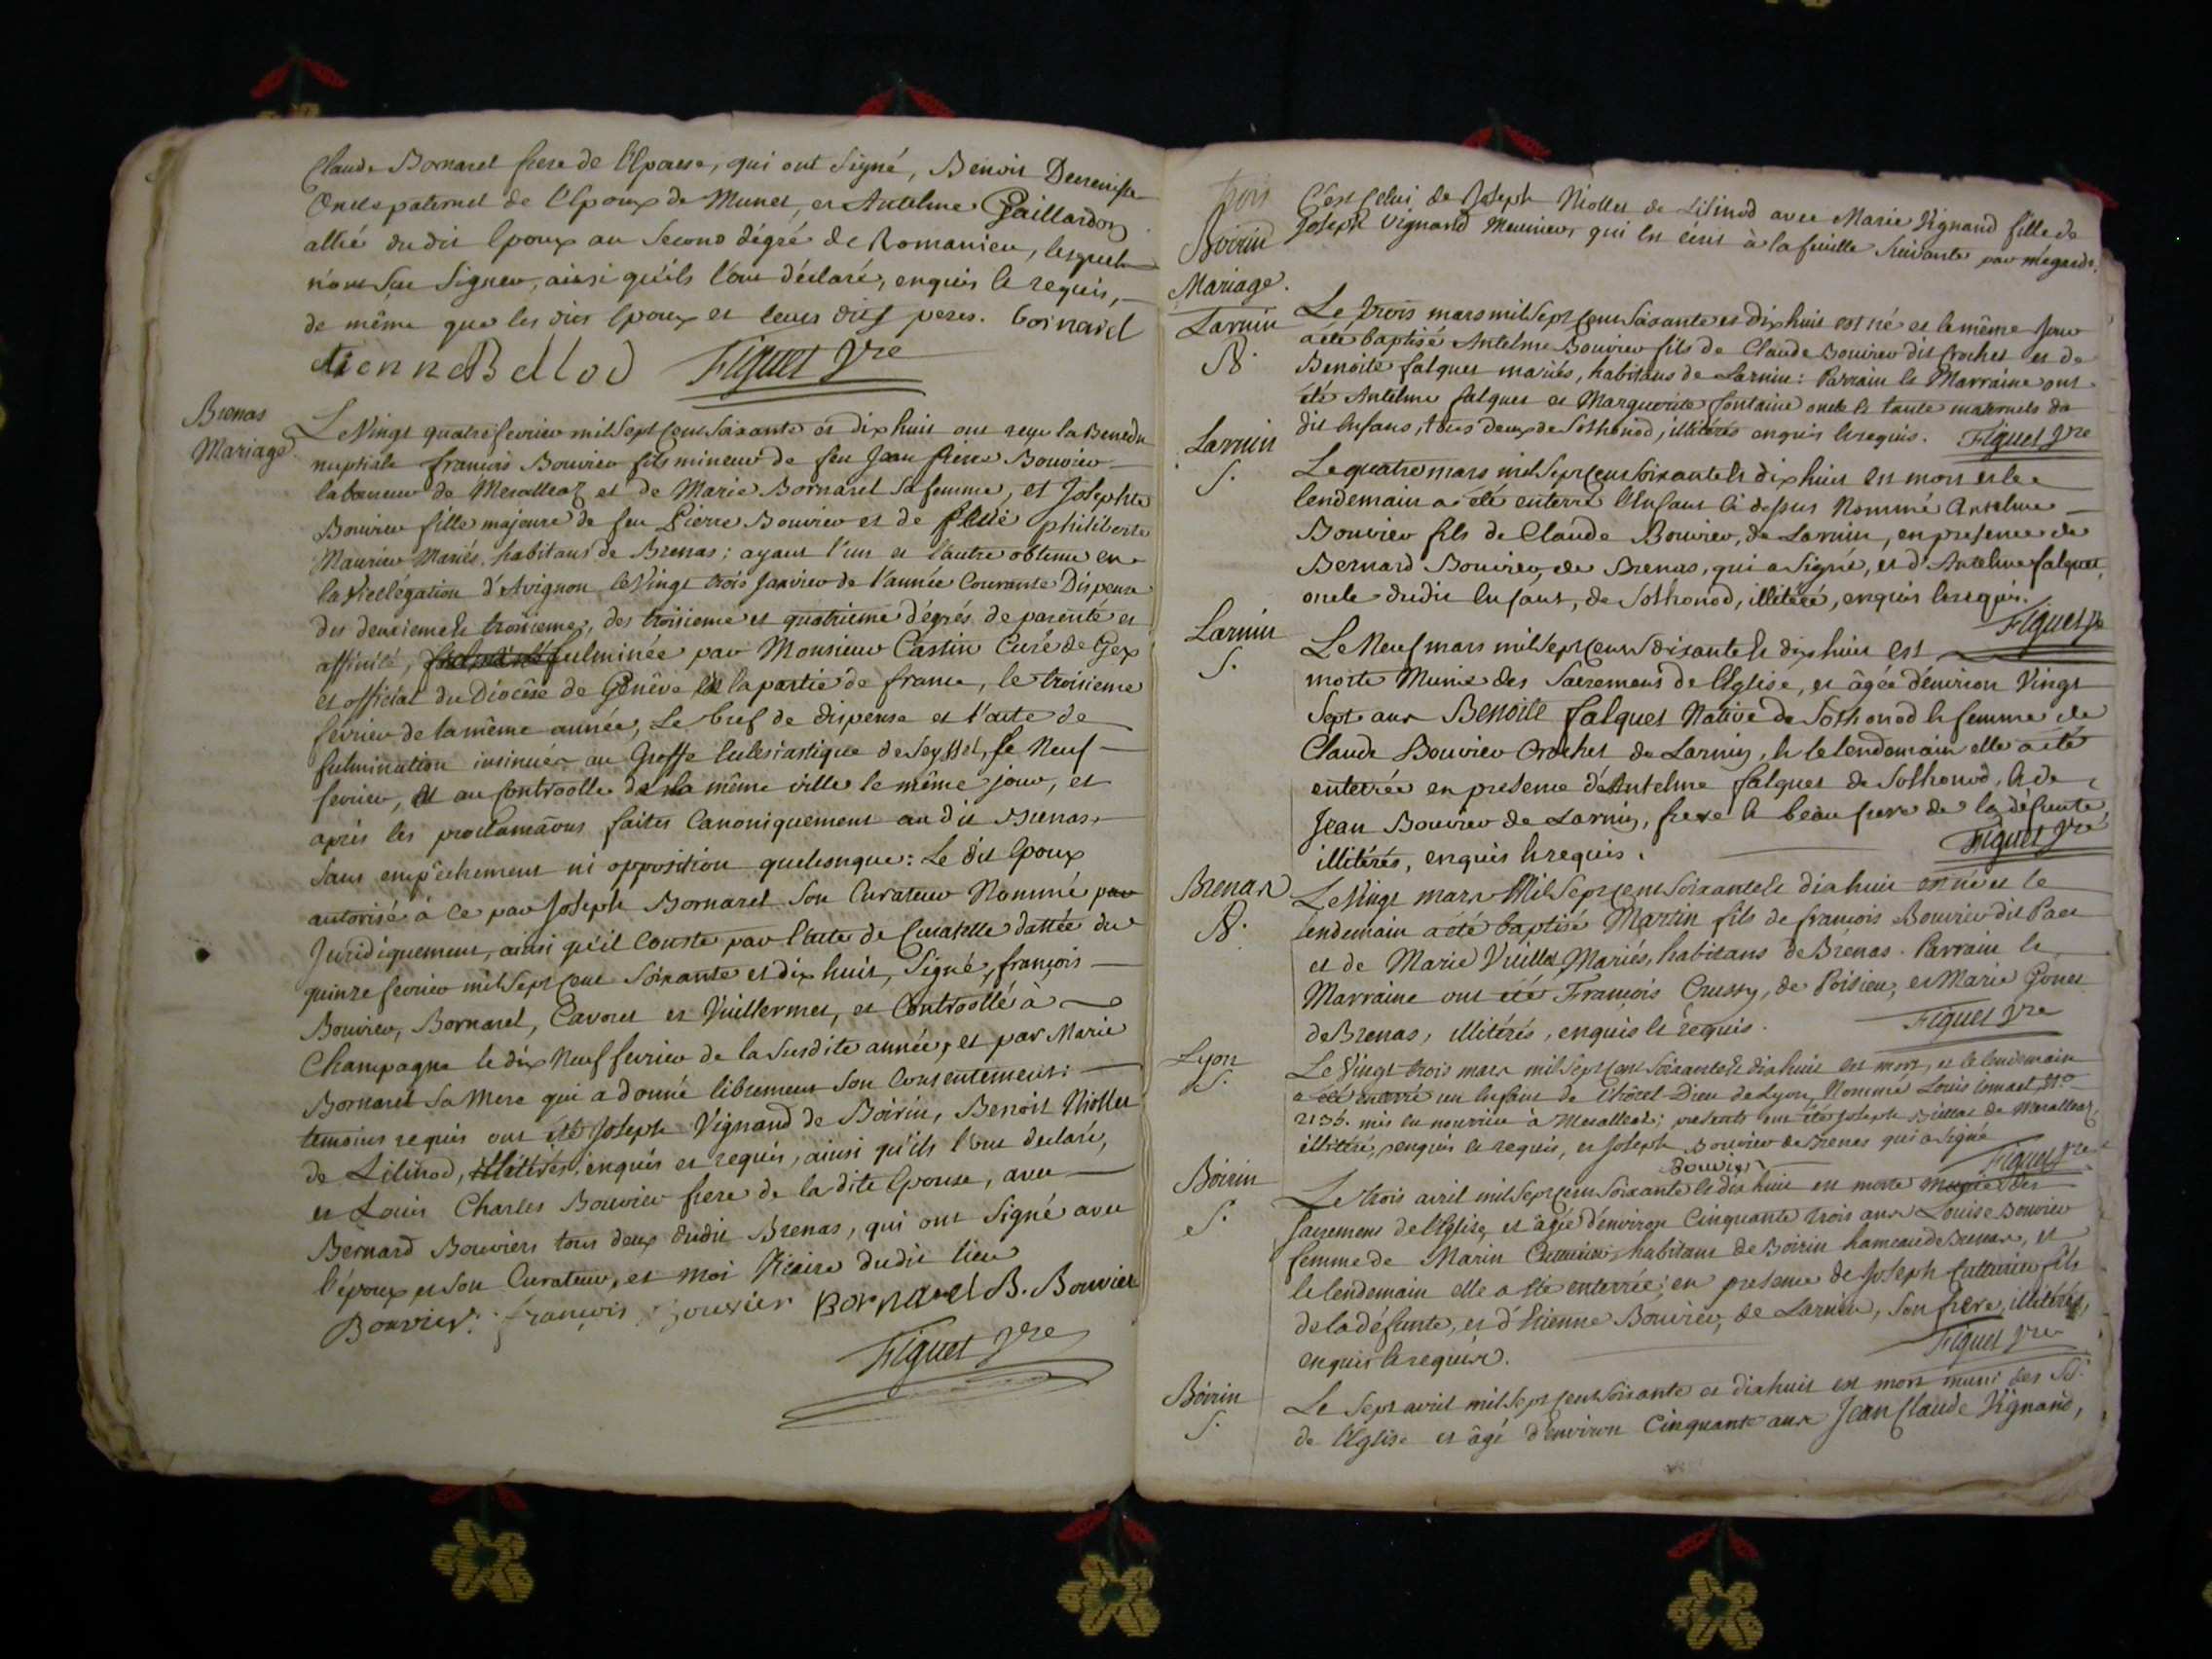 Claude Bornarel frere de l'Epouse, qui ont Signé, Benoit
Oncle paternel de l'Epoux de Munet, et Antelme Gaillardon
allié dudit Epoux au Second dégré de Romanieu, lesquels
n'ont Sçu Signer, ainsi qu'ils l'ont déclaré, enquis & requis,
de même que les dits Epoux et leurs dits peres. bornarel
Etienne Bellod Figuet Vre
Brenas
Mariage
Le Vingt quatre fevrier mil Sept Cent Soixante et dix huit ont reçu la Benedn
nuptiale francois Bouvier fils mineur de feu Jean Bouvier
laboureur de Meralleaz et de Marie Bornarel Sa femme, et Josephte
Bouvier fille majeure de feu Pierre Bouvier et de feue philiberte
Maurier Mariés, habitans de Brenas; ayant l'un et l'autre obtenu en
la Vicelégation d'Avignon le Vingt trois Janvier de l'année Courante Dispense
des deuxieme & troisieme, des troisieme et quatrieme dégrés de parenté et
affinité, fulminée par Monsieur Castin Curé de Gex
et official du Diocêse de Genêve la partie de france, le troisieme
fevrier de la même année, Le bref de dispense et l'acte de
fulmination insinués au Greffe Ecclésiastique de Seyssel, le Neuf
fevrier, et au Controolle de la même ville le même jour, et
après les proclamãons faites Canoniquement au dit Brenas,
Sans empêchement ni opposition quelconque: Le dit Epoux
autorisé à ce par Joseph Bornarel Son Curateur Nommé par
Juridiquement, ainsi qu'il Conste par l'acte de Curatelle dattée du
quinze fevrier mil Sept Cent Soixante et dix huit, Signé, françois
Bouvier, Bornarel, Cavoret et Vuillermet, et Controollé à
Champagne le dix Neuf fevrier de la Susdite année, et par Marie
Bornarel Sa Mere qui a donné librement Son Consentement:
temoins requis ont été Joseph Vignand de Boirin, Benoit Niollet
de Lilinod, illitérés, enquis et requis, ainsi qu'ils l'ont declaré,
et Louis Charles Bouvier frere de la dite Epouse, avec
Bernard Bouviers tous deux dudit Brenas, qui ont Signé avec
l'époux et Son Curateur, et Moi Vicaire dudit lieu
Bouvier. françois bouvier Bornarel B. Bouvier
Figuet Vre
trois
Boirin
Mariage.
C'est Celui de Joseph Niollet de Lilinod avec Marie Vignand fille de
Joseph Vignand Meunier, qui est écrit à la feuille Suivante par mégarde.
Larnin
B.
Le trois mars mil Sept Cent Soixante et dix huit est né et le même Jour
a été baptisé Antelme Bouvier fils de Claude Bouvier dit Crochet et de
Benoite falquet mariés, habitans de Larnin: Parrain & Marraine ont
été Antelme falquet et Marguerite fontaine oncle & tante maternels du
dit Enfant, tous deux de Sothonod, illitérés enquis & requis. Figuet Vre
Larnin
S.
Le quatre mars mil Sept Cent Soixante & dix huit est mort et le
lendemain a été enterré l'Enfant ci dessus Nommé Antelme
Bouvier fils de Claude Bouvier, de Larnin, en presence de
Bernard Bouvier, de Brenas, qui a Signé, et d'Antelme falquet,
oncle dudit Enfant, de Sothonod, illitéré, enquis & requis.
Figuet Vre
Larnin
S.
Le Neuf mars mil Sept Cent Soixante & dix huit est
morte Munie des Sacremens de l'Eglise, et âgée d'environ Vingt
Sept ans Benoite falquet Native de Sothonod & femme de
Claude Bouvier Crochet de Larnin, & le lendemain elle a été
enterrée en presence d'Antelme falquet de Sothonod, & de
Jean Bouvier de Larnin, frere & beau frere de la défunte,
illitérés, enquis & requis.
Figuet Vre
Brenas
B.
Le Vingt mars Mil Sept Cent Soixante & dix huit est né et le
lendemain a été baptisé Martin fils de francois Bouvier dit Pact
et de Marie Vuillet Mariés, habitans de Brénas. Parrain &
Marraine ont été François Crussy, de Poisieu, et Marie Gonet
de Brenas, illitérés, enquis & requis.
Figuet Vre
Lyon
S.
Le Vingt trois mars mil Sept Cent Soixante & dix huit est mort, et le lendemain
a été enterré un Enfant de l'hôtel-Dieu de Lyon, Nommé Louis No
2135. mis en nourrice à Meralleaz; presents ont été Joseph Billat de Meralleaz
illitéré, enquis & requis, et Joseph Bouvier de Brenas qui a Signé
Bouvier Figuet Vre
Boirin
S.
Le trois avril mil Sept Cent Soixante & dix huit est morte munie des
Sacremens de l'Eglise, et âgée d'environ Cinquante trois ans Louise Bouvier
femme de Marin habitans de Boirin hameau de Brenas, et
le lendemain elle a été enterrée, en presence de Joseph Cutturier fils
de la défunte, et d'Etienne Bouvier, de Larnin, Son frere, illitérés,
enquis & requis.
Figuet Vre
Boirin
S.
Le Sept avril mil Sept Cent Soixante et dix huit est mort muni des St.
de l'Eglise et âgé d'environ Cinquante ans Jean Claude Vignand,